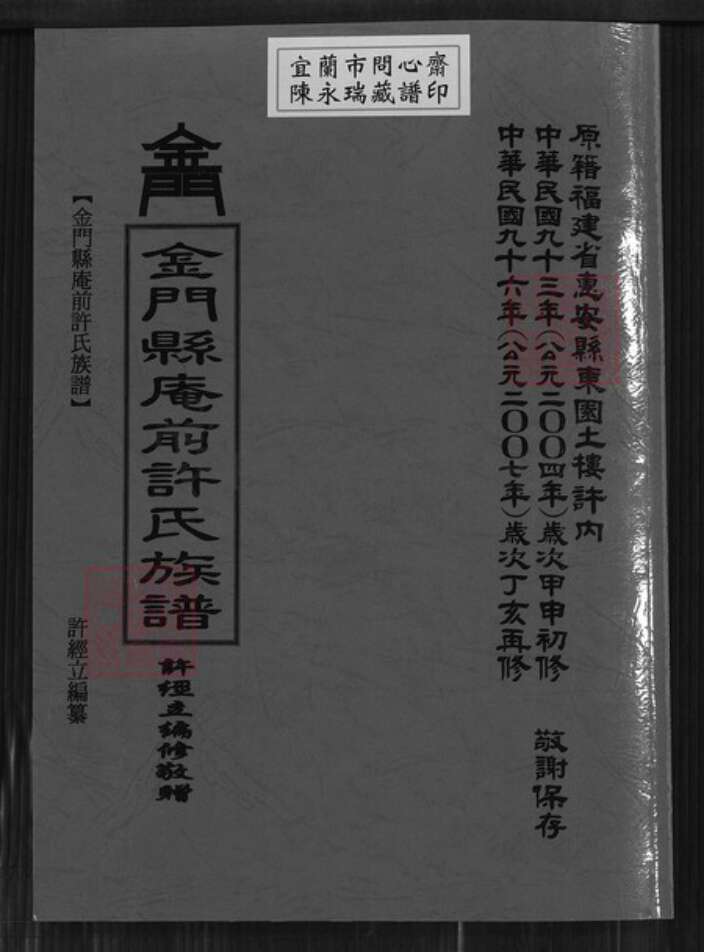 宜蘭市問心齋
陳永瑞藏譜印
原籍福建省惠安縣東園土樓許內
中華民國九十三年(公元二〇〇四年)歲次甲申初修
敬謝保存
中華民國九十六年(公元二〇〇七年)歲次丁亥再修
金門
金門縣庵前許氏族譜
許經立編修敬贈
【金門縣庵前許氏族譜】
許經立編纂